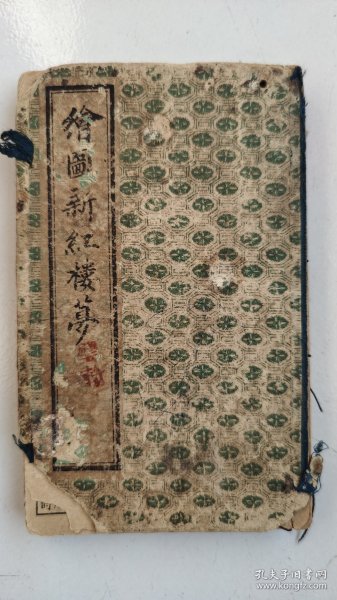 繪圖新紅樓夢
孔夫子旧书网
www.kongfz.com